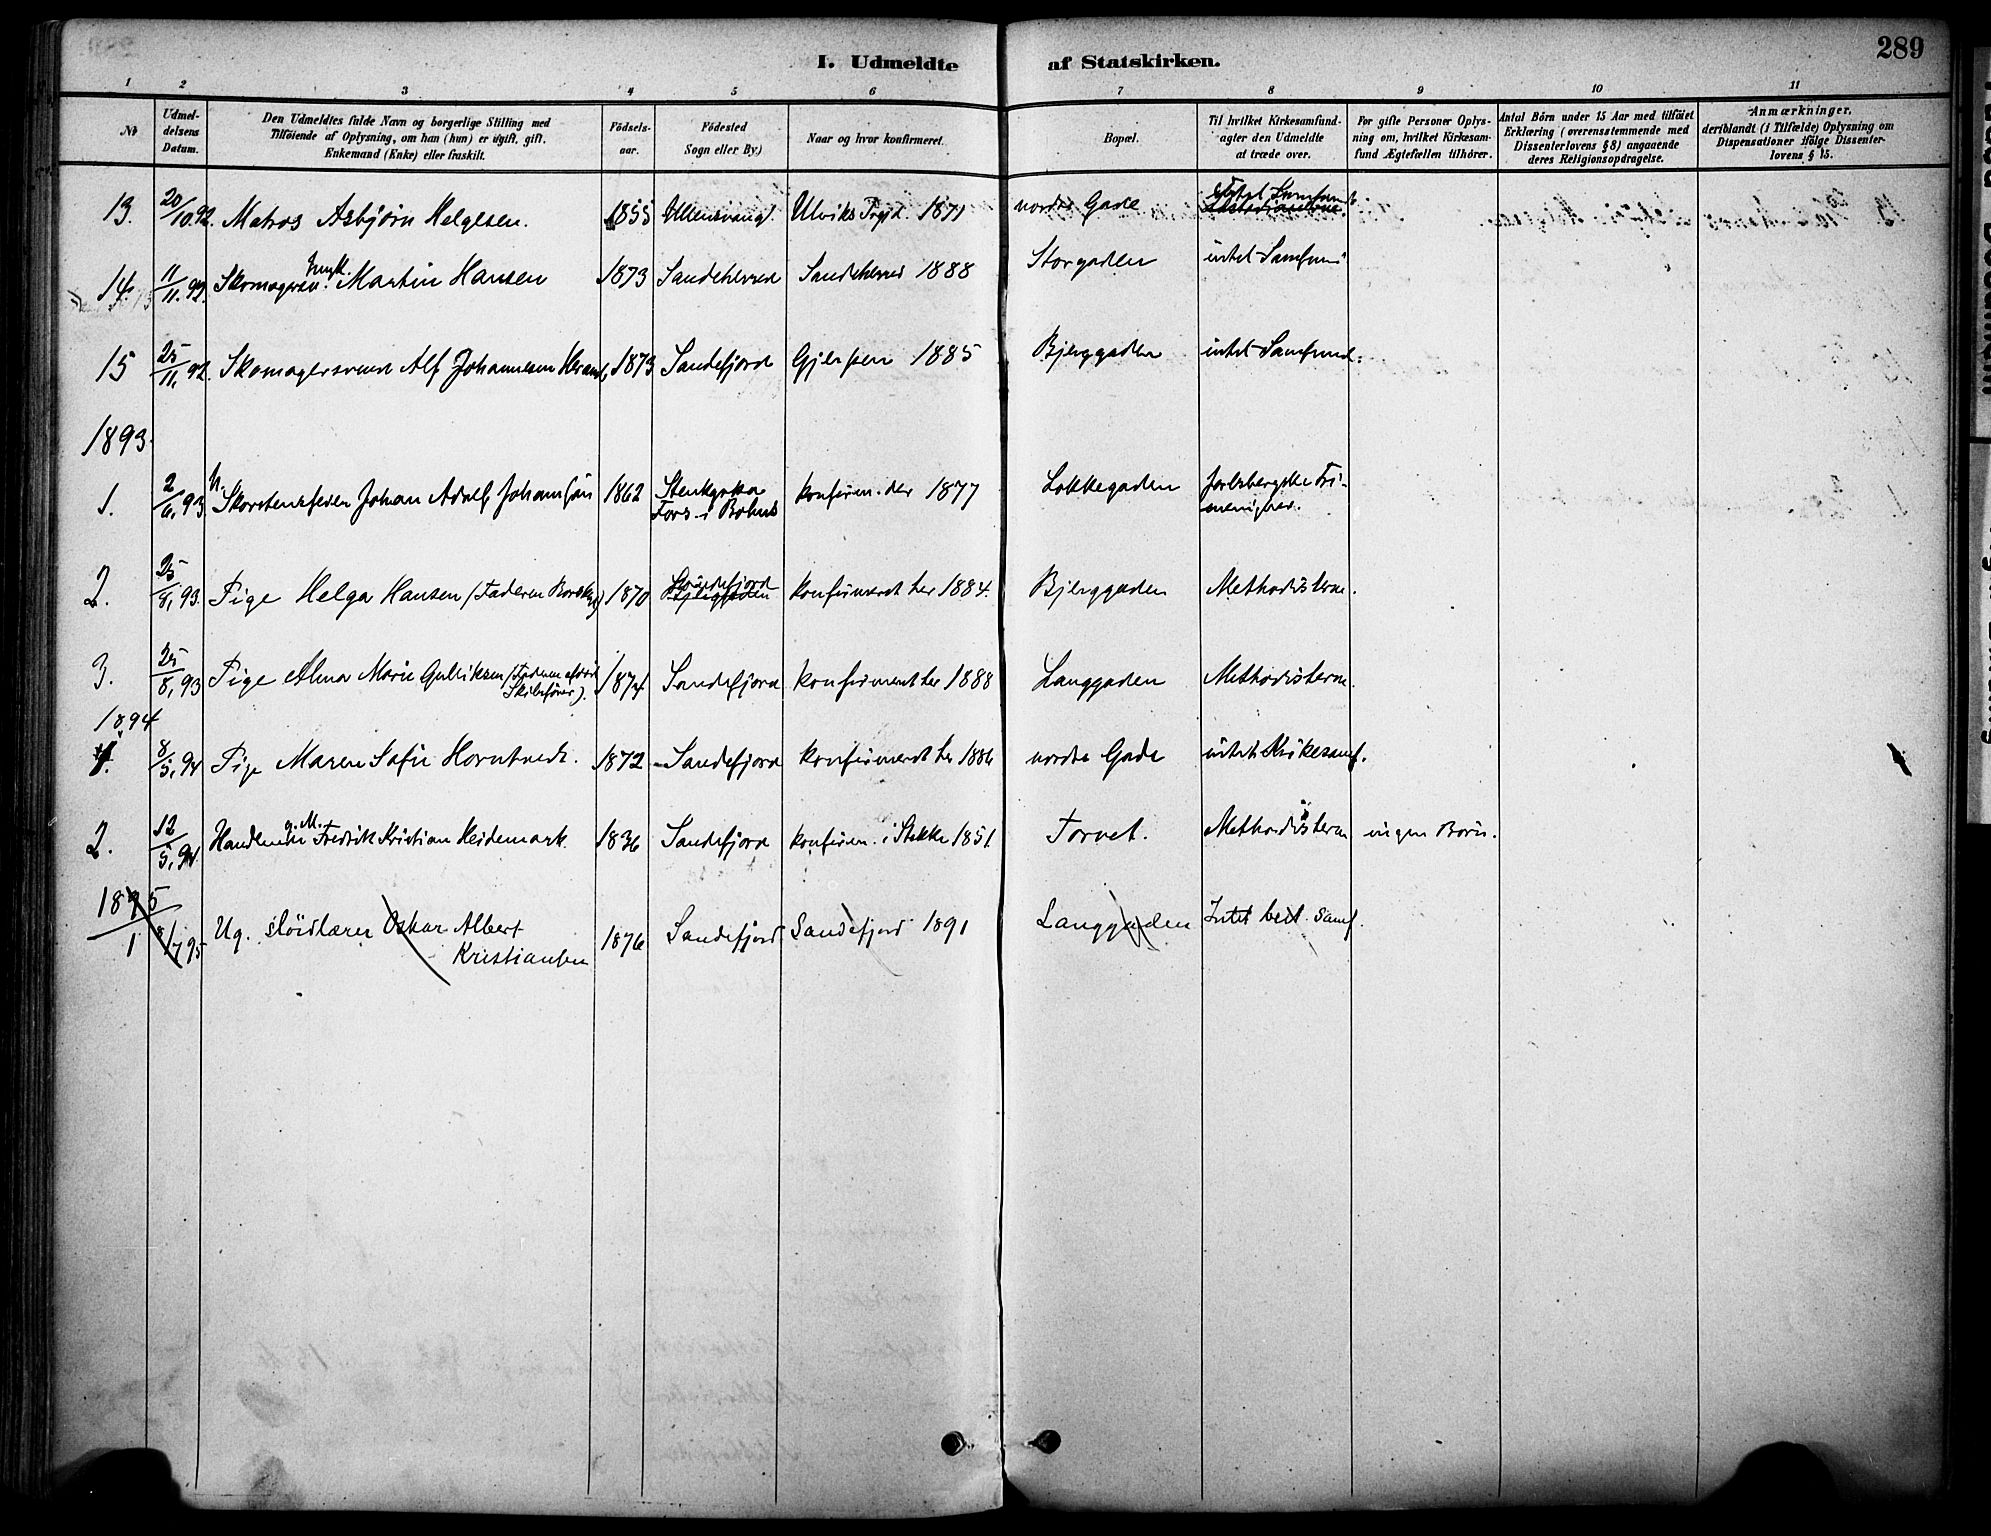 289
I. Udmeldte af Statskirken.
1 2 3 4 5 6 7 8 9 10 11
No
Udmel-
delsens
Datum.
Den Udmeldtes fulde Navn og borgerlige Stilling med
Tilföiende af Oplysning, om han (hun) er ugift, gift,
Enkemand (Enke) eller fraskilt.
Födsels-
aar.
Födested
Sogn eller By.)
Naar og hvor konfirmeret.
Bopæl.
Til hvilket Kirkesamfund-
agter den Udmeldte
at træde over.
For gifte Personer Oplys-
ning om, hvilket Kirkesam-
fund Ægtefællen tilhörer.
Antal Börn under 15 Aar med tilföiet
Erklæring (overensstemmende med
Dissenterlovens § 8) angaaende
deres Religionsopdragelse.
Anmærkninger,
deriblandt (i Tilfælde) Oplysning om
Dispensationer ifölge Dissenter-
lovens § 15.
13. 20/10.92. Matros Asbjørn Helgesen. 1855 Ullensvang Ulviks Prgjd. 1871 nordre Gade intet Samfund
14. 11/11.92. Skomagersv. Martin Hansen 1873 Sandeherred Sandeherred 1888 Storgaden intet Samfund
15 25/11.92. Skomagersvend Alf Johannesen 1873 Sandefjord Gjerpen 1885 Bjerggaden intet Samfund.
1893.
1. 2/6.93 Skorstensfeier Johan Adolf Johansson 1862 Stenkyrka konfirm. der 1877 Løkkegaden Jarlsbergske Fri-
Fors i Bohus menighed.
2. 25/8.93. Pige Helga Hansen (Faderen 1870 Sandefjord konfirmeret her 1884. Bjerggaden Methodisterne.
3. 25/8.93 Pige Alma Marie Gulliksen (Faderen afdød 1874. Sandefjord konfirmeret her 1888 Langgaden Methodisterne.
Skibsfører).
1894
1. 8/5.94 Pige Maren Sofie Horntvedt. 1872 Sandefjord konfirmeret her 1886 nordre Gade intet Kirkesamf.
2. 12/5.94. g. M.
Handlende Fredrik Kristian Heidemark. 1836 Sandefjord konfirm. i Stokke 1851 Torvet. Methodisterne ingen Børn.
1895
1 8/7 95 Ug. sløidlærer Oskar Albert 1876 Sandefjord Sandefjord 1891 Langgaden Intet best. Samf.
Kristiansen